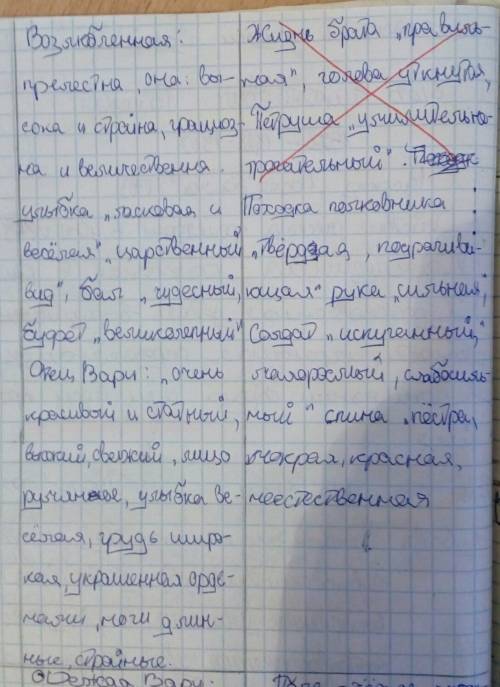 Возлюбленная:
прелестна, она: вы-
сока и стройна, грациоз-
на и величественна.
улыбка „ласковая и
весёлая", царственный
вид", бал „чудесный,
буфет „великолепный"
Отец Вари: „очень
красивый и статный,
высокий, свежий, лицо
румяное, улыбка ве-
сёлая, грудь широ-
кая, украшенная орде-
нами, ноги длин-
ные, стройные.
Одежда Вари:
Жизнь брата „правиль-
ная", голова уткнутая,
Петруша „умилительно-
трогательный".
Походка полковника :
„твёрдая, подрагива-
ющая" рука „сильная,"
Солдат „испуганный,
малорослый, слабосиль-
ный" спина „пёстрая,
мокрая, красная,
неестественная